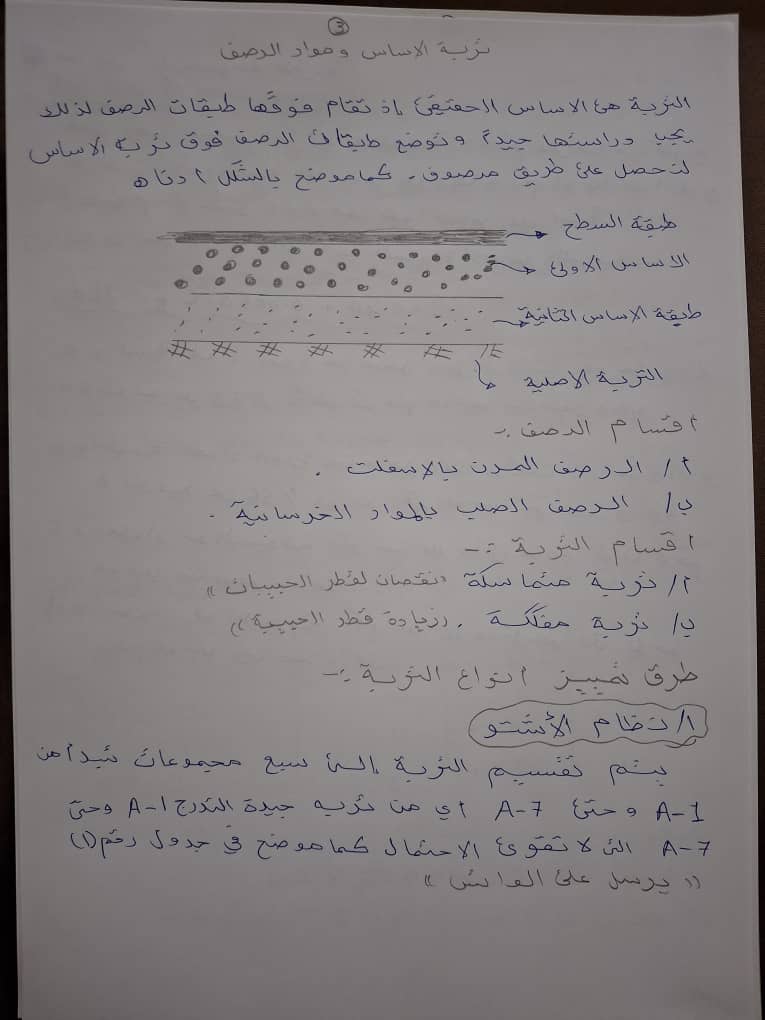 3
تربة الاساس ومواد الرصف
التربة هي الاساس الحقيقي إذ تقام فوقها طبقات الرصف لذلك
يجب دراستها جيداً وتوضع طبقات الرصف فوق تربة الاساس
لتحصل على طريق مرصوف. كما موضح بالشكل ادناه
طبقة السطح
الاساس الاولى
طبقة الاساس الثانية
التربة الاصلية
اقسام الرصف :-
أ/ الرصف المرن بالاسفلت .
ب/ الرصف الصلب بالمواد الخرسانية .
اقسام التربة :-
أ/ تربة متماسكة ((نقصان لقطر الحبيبات))
ب/ تربة مفككة . ((زيادة قطر الحبيبة))
طرق تمييز انواع التربة :-
1/ نظام الأشتو
يتم تقسيم التربة إلى سبع مجموعات تبدأ من
A-1 وحتى A-7 أي من تربه جيدة التدرج A-1 وحتى
A-7 التي لا تقوى الاحتمال كما موضح في جدول رقم (1)
(( يرسل على الواتس ))